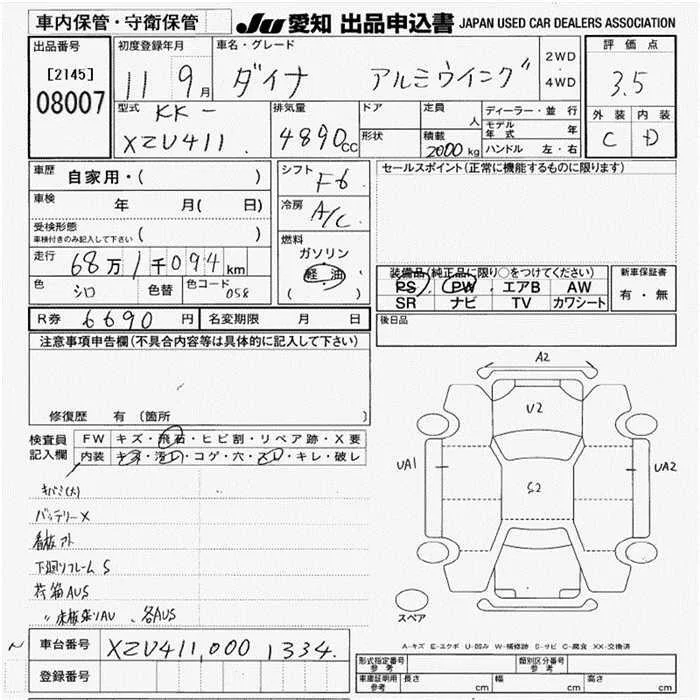 車内保管・守衛保管
JU 愛知 出品申込書 JAPAN USED CAR DEALERS ASSOCIATION
出品番号
[2145]
08007
初度登録年月
11 9月
車名・グレード
ダイナ アルミウイング
2WD
4WD
評価点
3.5
外装 内装
C D
型式 KK-
XZU411
排気量
4890cc
ドア
形状
定員
人
積載
2000kg
ディーラー・並行
モデル年式 年
ハンドル 左・右
車歴
自家用・( )
車検
年 月( 日)
受検形態
車検付きのみ記入して下さい ( )
走行
68万1千094km
色
シロ
色替
色コード
058
シフト
F6
冷房
A/C
燃料
ガソリン
軽油
( )
セールスポイント(正常に機能するものに限ります)
装備品(純正品に限り○をつけてください)
PS PW エアB AW
SR ナビ TV カワシート
新車保証書
有・無
R券 6690円
名変期限 月 日
後日品
注意事項申告欄(不具合内容等は具体的に記入して下さい)
修復歴 有(箇所 )
検査員記入欄
FW キズ・飛石・ヒビ割・リペア跡・X要
内装 キズ・汚れ・コゲ・穴・スレ・キレ・破レ
バッテリーX
看板アト
下廻りフレームS
荷箱AUS
各AUS
A2
U2
UA1
S2
UA2
スペア
A-キズ E-エクボ U-凹み W-補修跡 S-サビ C-腐食 XX-交換済
車台番号
XZU411,0001334.
登録番号
形式指定番号 参考
類別区分番号 参考
車庫証明用 参考
長さ cm
幅 cm
高さ cm